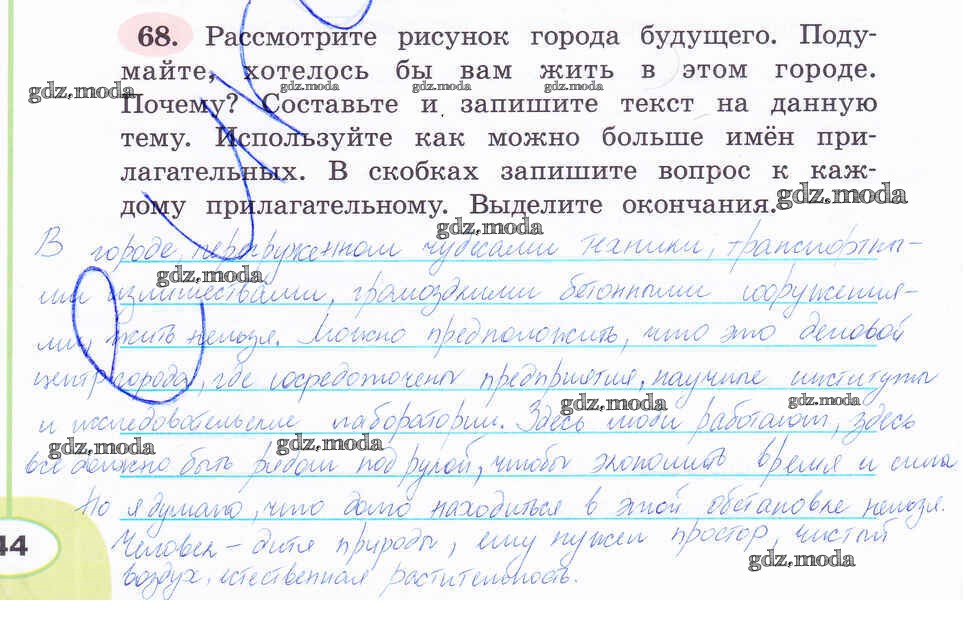 68. Рассмотрите рисунок города будущего. Поду-
майте, хотелось бы вам жить в этом городе.
gdz.moda gdz.moda gdz.moda gdz.moda
Почему? Составьте и запишите текст на данную
тему. Используйте как можно больше имён при-
лагательных. В скобках запишите вопрос к каж-
дому прилагательному. Выделите окончания.
gdz.moda
gdz.moda
В городе, перегруженном чудесами техники, транспортны-
gdz.moda
ми излишествами, громоздкими бетонными сооружения-
ми, жить нельзя. Можно предположить, что это деловой
центр города, где сосредоточены предприятия, научные институты
gdz.moda gdz.moda
и исследовательские лаборатории. Здесь люди работают, здесь
gdz.moda gdz.moda
все должно быть рядом под рукой, чтобы экономить время и силы
Но я думаю, что долго находиться в этой обстановке нельзя.
44
Человек – дитя природы, ему нужен простор, чистый
gdz.moda
воздух, естественная растительность.